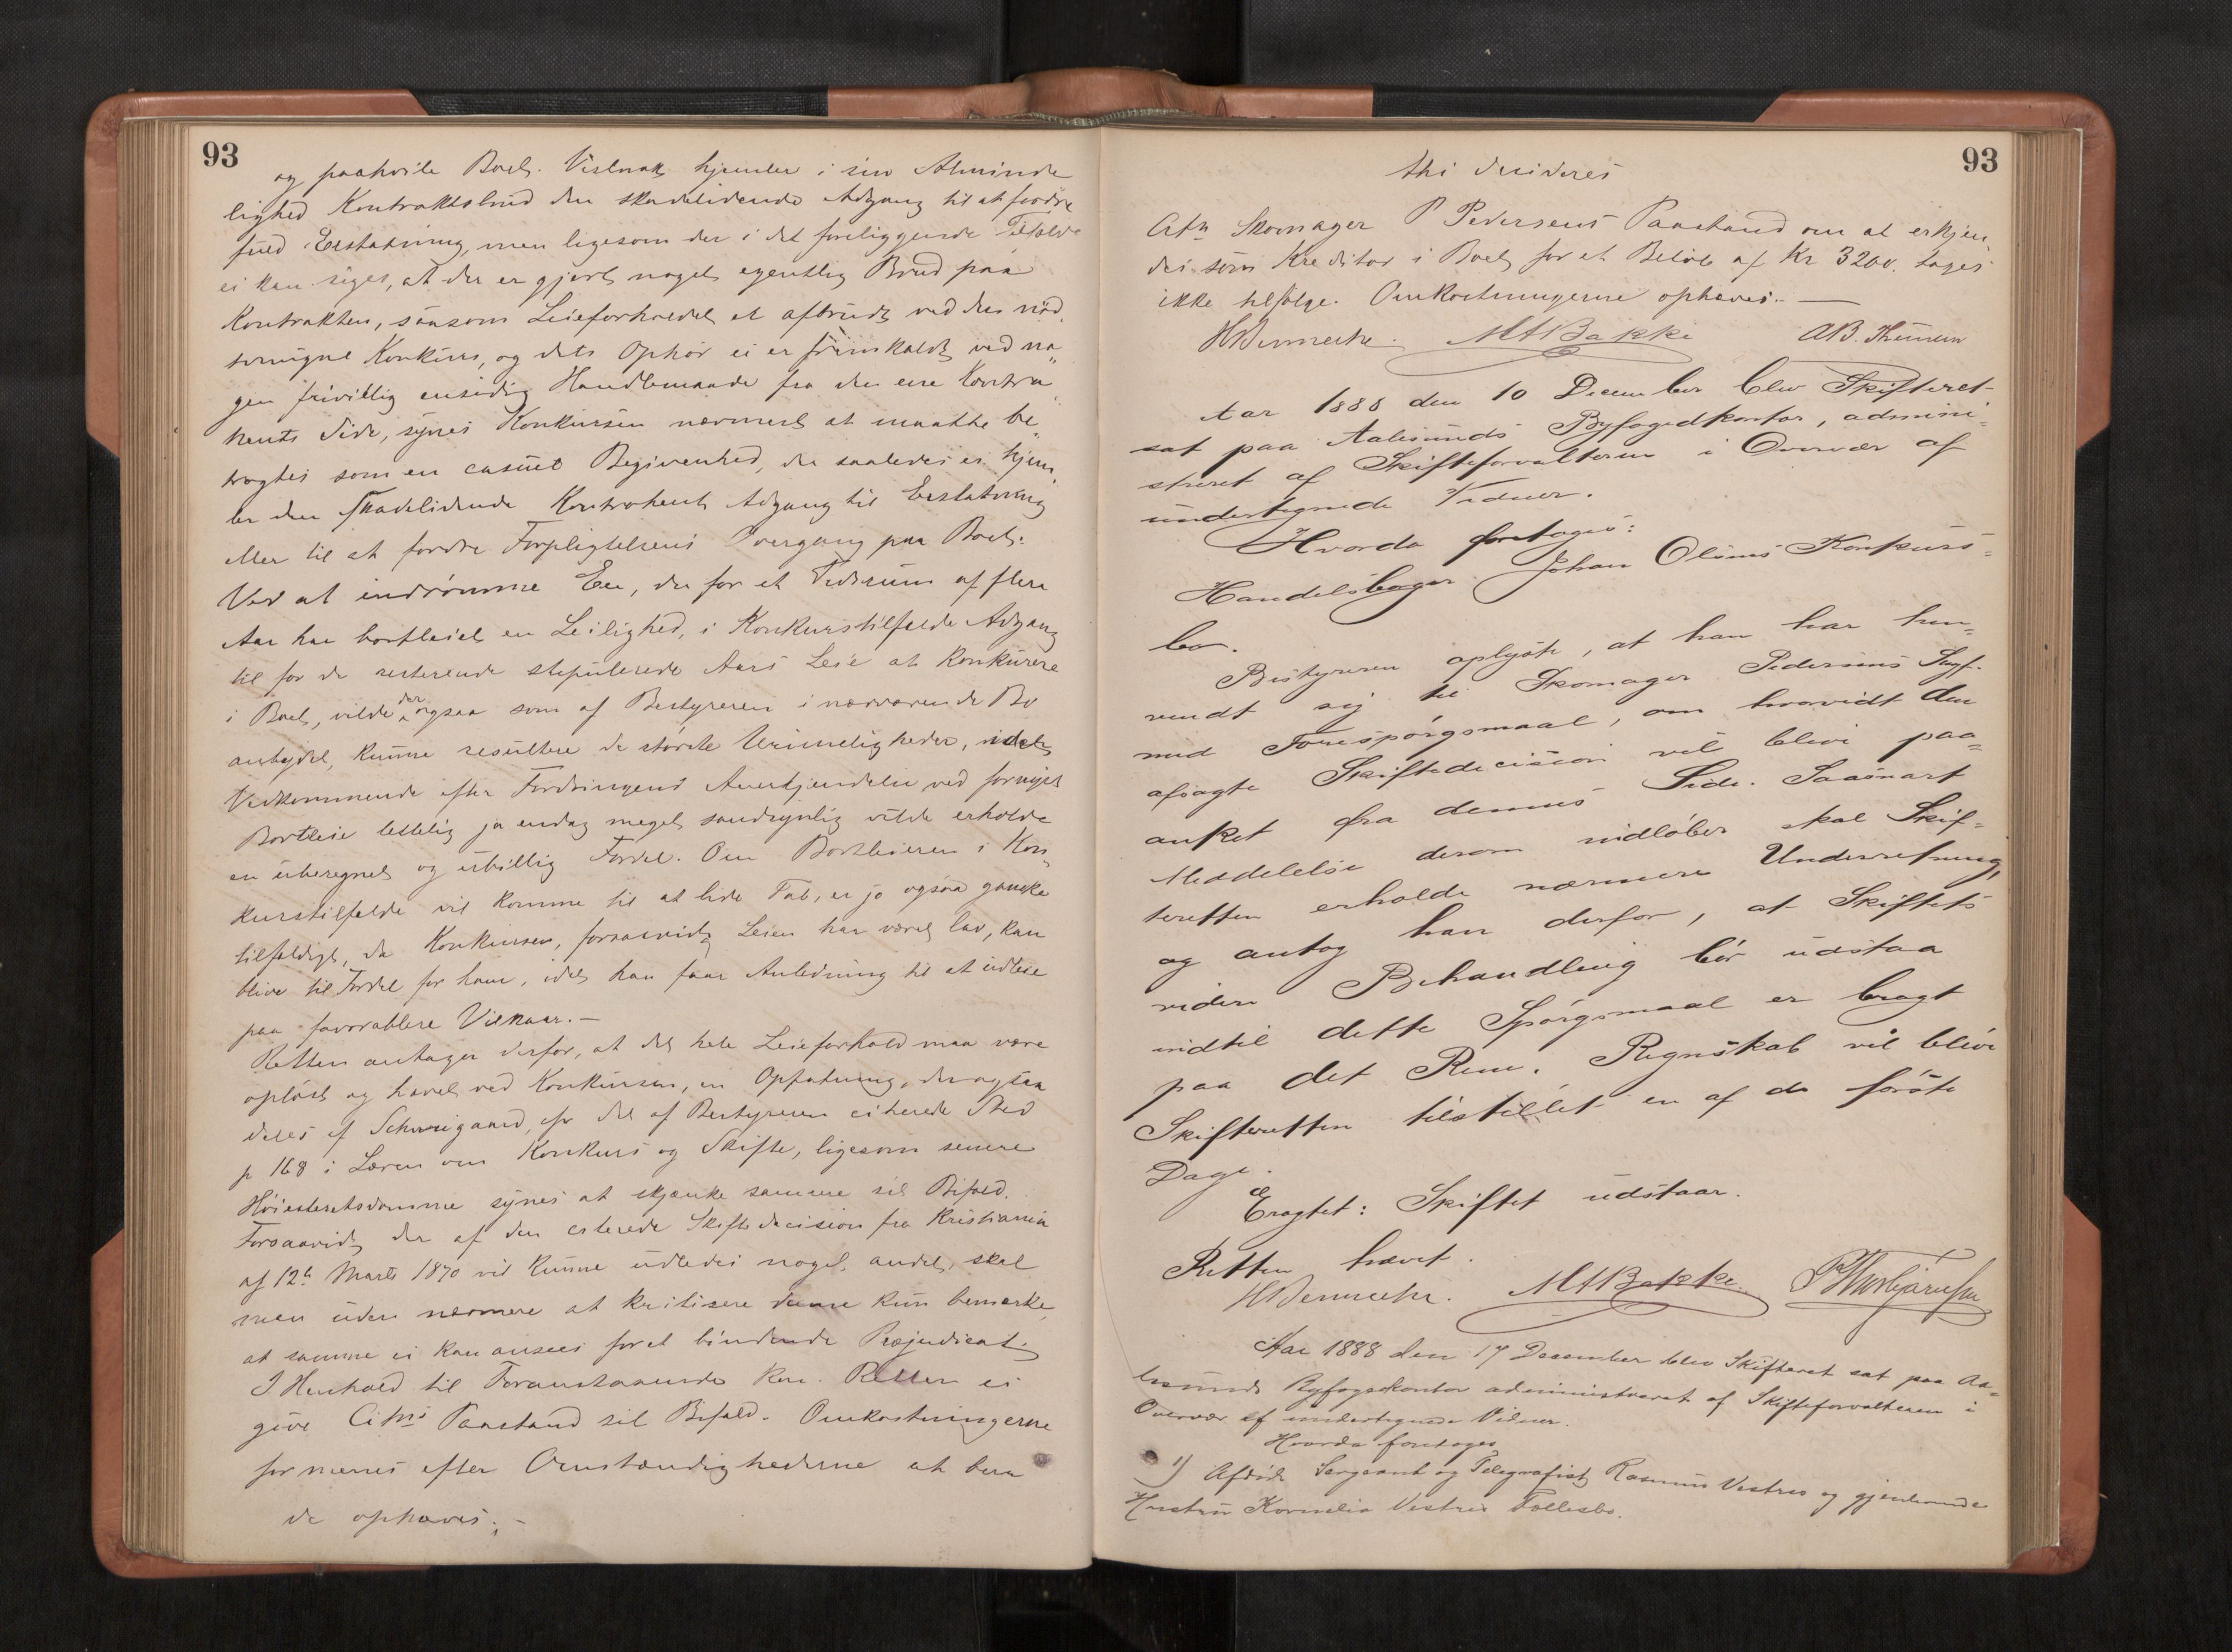 93
og paahvile Boet. Vistnok hjemler i sin Alminde
lighed Kontraktsbrud den skadelidende Adgang til at fordre
fuld Erstatning, men ligesom der i det foreliggende Tilfælde
ei kan siges, at der er gjort noget egentlig Brud paa
Kontrakten, saasom Leieforholdet er afbrudt ved den nød
tvungne Konkurs, og dets Ophør ei er fremkaldt ved no
gen frivillig ensidig Handlemaade fra den ene Kontra
hents Side, synes Konkursen nærmest at maatte be
tragtes som en casuel Begivenhed, der saaledes ei hjem
ler den skadelidende Kontrahent Adgang til Erstatning
eller til at fordre Forpligtelsens Overgang paa Boet.
Ved at indrømme Een, der for et Tidsrum af flere
Aar har bortleiet en Leilighed, i Konkurstilfælde Adgang
til for de resterende stipulerede Aars Leie at konkurere
i Boet, vilde der ogsaa som af Bestyreren i nærværende Bo
antydet, kunne resultere de største Urimeligheder, idet
Vedkommende efter Fordringens Anerkjendelse ved fornyet
Bortleie lettelig ja endog meget sandsynlig vilde erholde
en uberegnet og ubillig Fordel. Om Bortleieren i Kon
kurstilfælde vil komme til at lide Tab, er jo ogsaa ganske
tilfældigt, da Konkursen, forsaavidt Leien har været lav, kan
blive til Fordel for ham, idet han faar Anledning til at udleie
paa favorablere Vilkaar.—
Retten antager derfor, at det hele Leieforhold maa være
opløst og hævet ved Konkursen, en Opfatning, der ogsaa
deles af Schweigaard, cfr det af Bestyreren citerede Sted
p 168 i Læren om Konkurs og Skifte, ligesom senere
Høiesteretsdomme synes at skjænke samme sit Bifald.
Forsaavidt der af den citerede Skiftedecision fra Kristiania
af 12te Marts 1870 vil kunne udledes noget andet, skal
man uden nærmere at kritisere denne kun bemærke,
at samme ei kan ansees for et bindende Præjudicat.
I Henhold til Foranstaaende kan Retten ei
give Citns Paastand sit Bifald. Omkostningerne
formenes efter Omstændighederne at bur
de ophæves.—
93
thi decideres
Citn Skomager P Pedersens Paastand om at erkjen
des som Kreditor i Boet for et Beløb af Kr 3200. tages
ikke tilfølge. Omkostningerne ophæves.—
MABakke
Aar 1888 den 10 December blev Skifteret
sat paa Aalesunds Byfogedkontor, admini-
streret af Skifteforvalteren i Overvær af
undertegnede Vidner.
Hvorda foretoges:
Handelsborger Johan Olsens Konkurs-
bo.
Bestyreren oplyste, at han har hen-
vendt sig til Skomager Pedersens Sagf.
med Forespørgsmaal, om hvorvidt den
afsagte Skiftedecision vil blive paa-
anket fra dennes Side. Saasnart
Meddelelse derom indløber skal Skif-
teretten erholde nærmere Underretning,
og antog han derfor, at Skiftets
videre Behandling bør udstaa
indtil dette Spørgsmaal er bragt
paa det Rene. Regnskab vil blive
Skifteretten tilstillet en af de første
Dage.
Eragtet: Skiftet udstaar.
Retten hævet.
MABakke
Aar 1888 den 17 December blev Skifteret sat paa Aa-
lesunds Byfogedkontor administreret af Skifteforvalteren i
Overvær af undertegnede Vidner.
Hvorda foretoges
1) Afdøde Sergeant og Telegrafist Rasmus Vestres og gjenlevende
Hustru Kornelia Vestres Fællesbo.